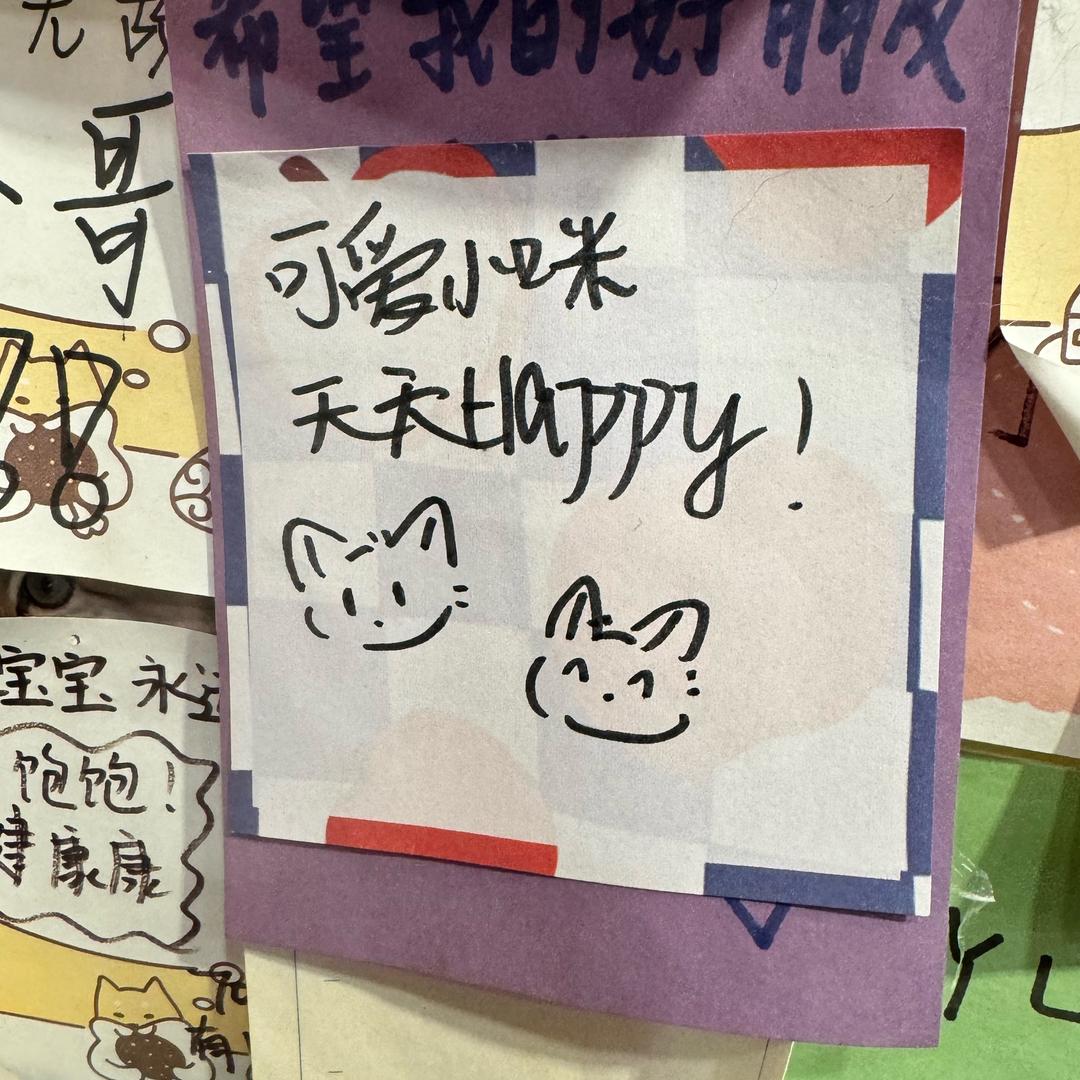 希望我的好朋友
哥
可爱小咪
天天Happy！
宝宝 永远
饱饱！
健康康
有
YU